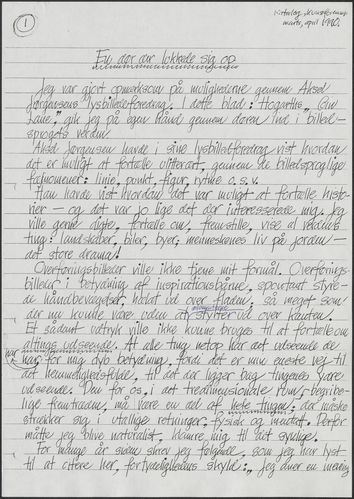 1
marts, april 1980.
En dør der lokkede sig op
Jeg var gjort opmærksom på mulighederne gennem Aksel
Jørgensens lysbilledforedrag. I dette blad: Hogarths "Gin
Lane", gik jeg på egen hånd gennem døren ind i billed-
sprogets verden
Aksel Jørgensen havde i sine lysbilledforedrag vist hvordan
det er muligt at fortælle ulitterært, gennem de billedsproglige
fænomener: linie, punkt, figur, rytme o.s.v.
Han havde vist hvordan det var muligt at fortælle histo-
rier — og det var jo lige det der interesserede mig. Jeg
ville gerne digte, fortælle om, fremstille, vise al verdens
ting: landskaber, biler, byer, menneskenes liv på jorden —
det store drama!
Overføringsbilleder ville ikke tjene mit formål. Overførings-
billeder i betydning af inspirationsbårne, spontant styre-
de håndbevægelser, holdt ud over fladen; så meget som
der nu kunne være uden at styrter ud over kanten.
Et sådant udtryk ville ikke kunne bruges til at fortælle om
altings udseende. At alle ting netop har det udseende de
har, har en dyb betydning, fordi det er den eneste vej til
det hemmelighedsfulde, til det der ligger bag tingenes ydre
udseende. Den for os, i det tredimensionale rum, begribe-
lige fremtræden, må være en del af hele tingen, der måske
strækker sig i utallige retninger, fysisk og mentalt. Derfor
måtte jeg blive naturalist, klamre mig til det synlige.
For mange år siden skrev jeg følgende, som jeg har lyst
til at citere her, fortydelighedens skyld: "Jeg øver en mening